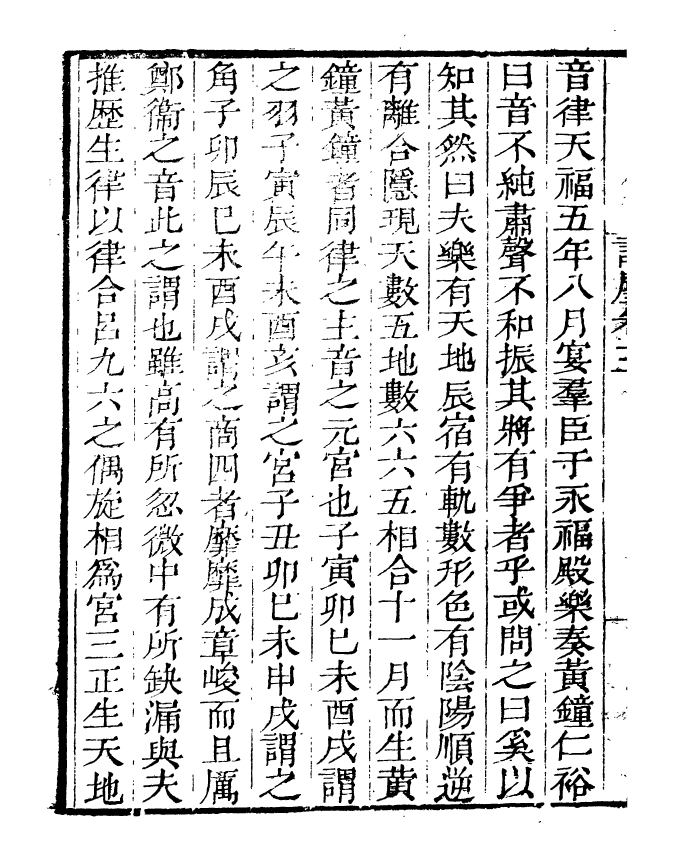 音律天福五年八月宴羣臣于永福殿樂奏黃鐘仁裕
曰音不純肅聲不和振其將有爭者乎或問之曰奚以
知其然曰夫樂有天地辰宿有軌數形色有陰陽順逆
有離合隱現天數五地數六六五相合十一月而生黃
鐘黃鐘者同律之主音之元宮也子寅卯巳未酉戌謂
之羽子寅辰午未酉亥謂之宮子丑卯巳未申戌謂之
角子卯辰巳未酉戌謂之商四者靡靡成章峻而且厲
鄭衞之音此之謂也雖高有所忽微中有所缺漏與夫
推歷生律以律合呂九六之偶旋相為宮三正生天地